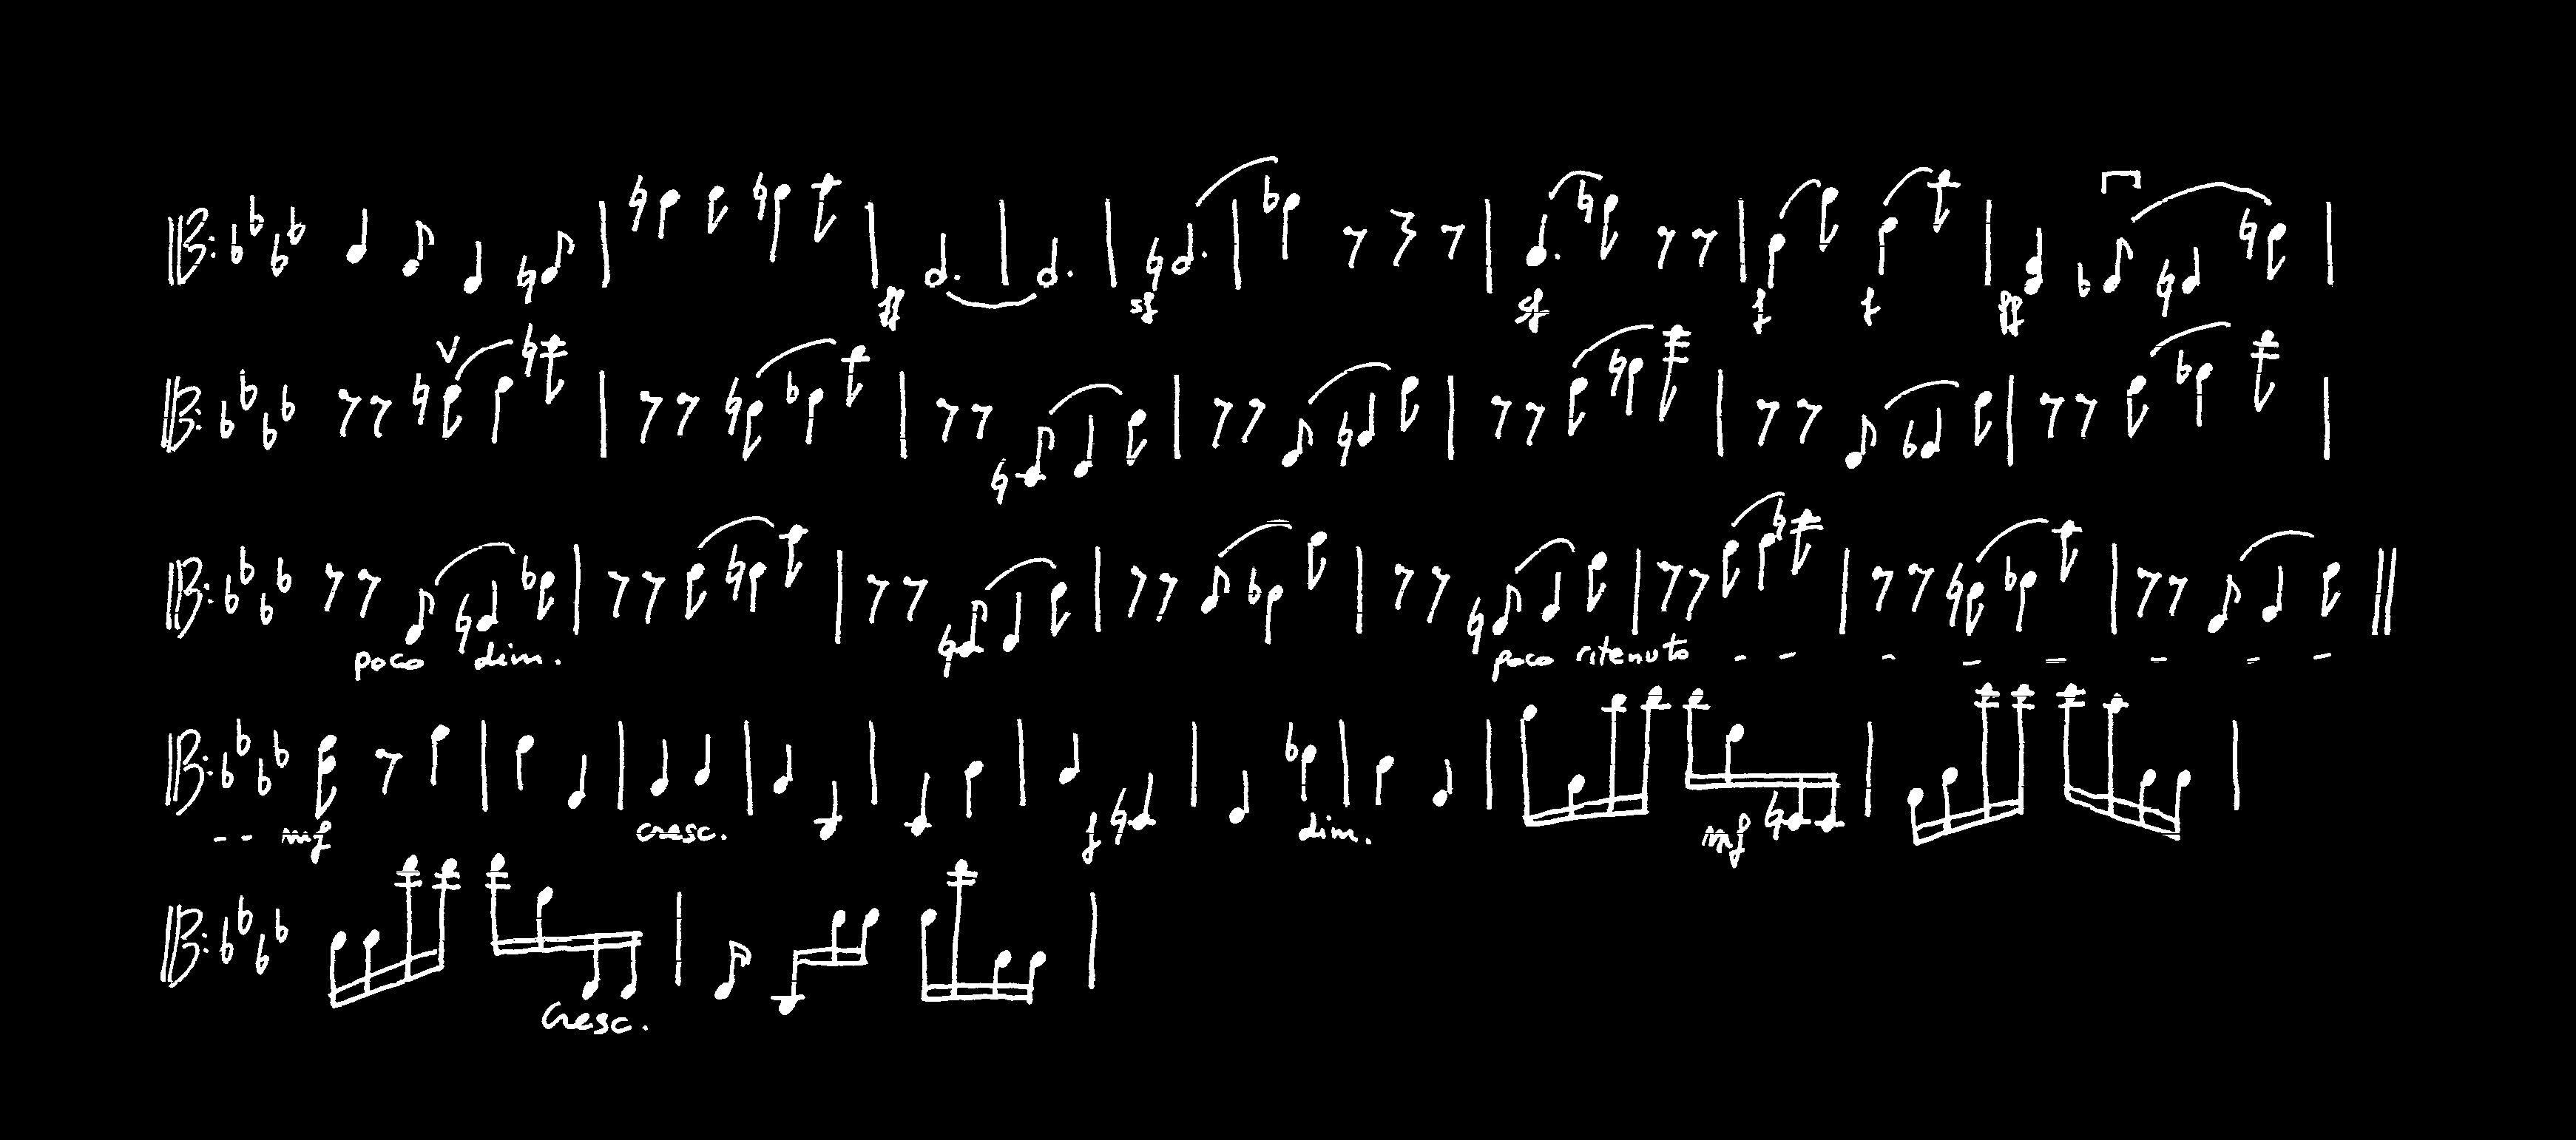 ff sf sf f f ff
V
poco dim. poco ritenuto - - - - - - - -
- - mf cresc. f dim. mf
Cresc.